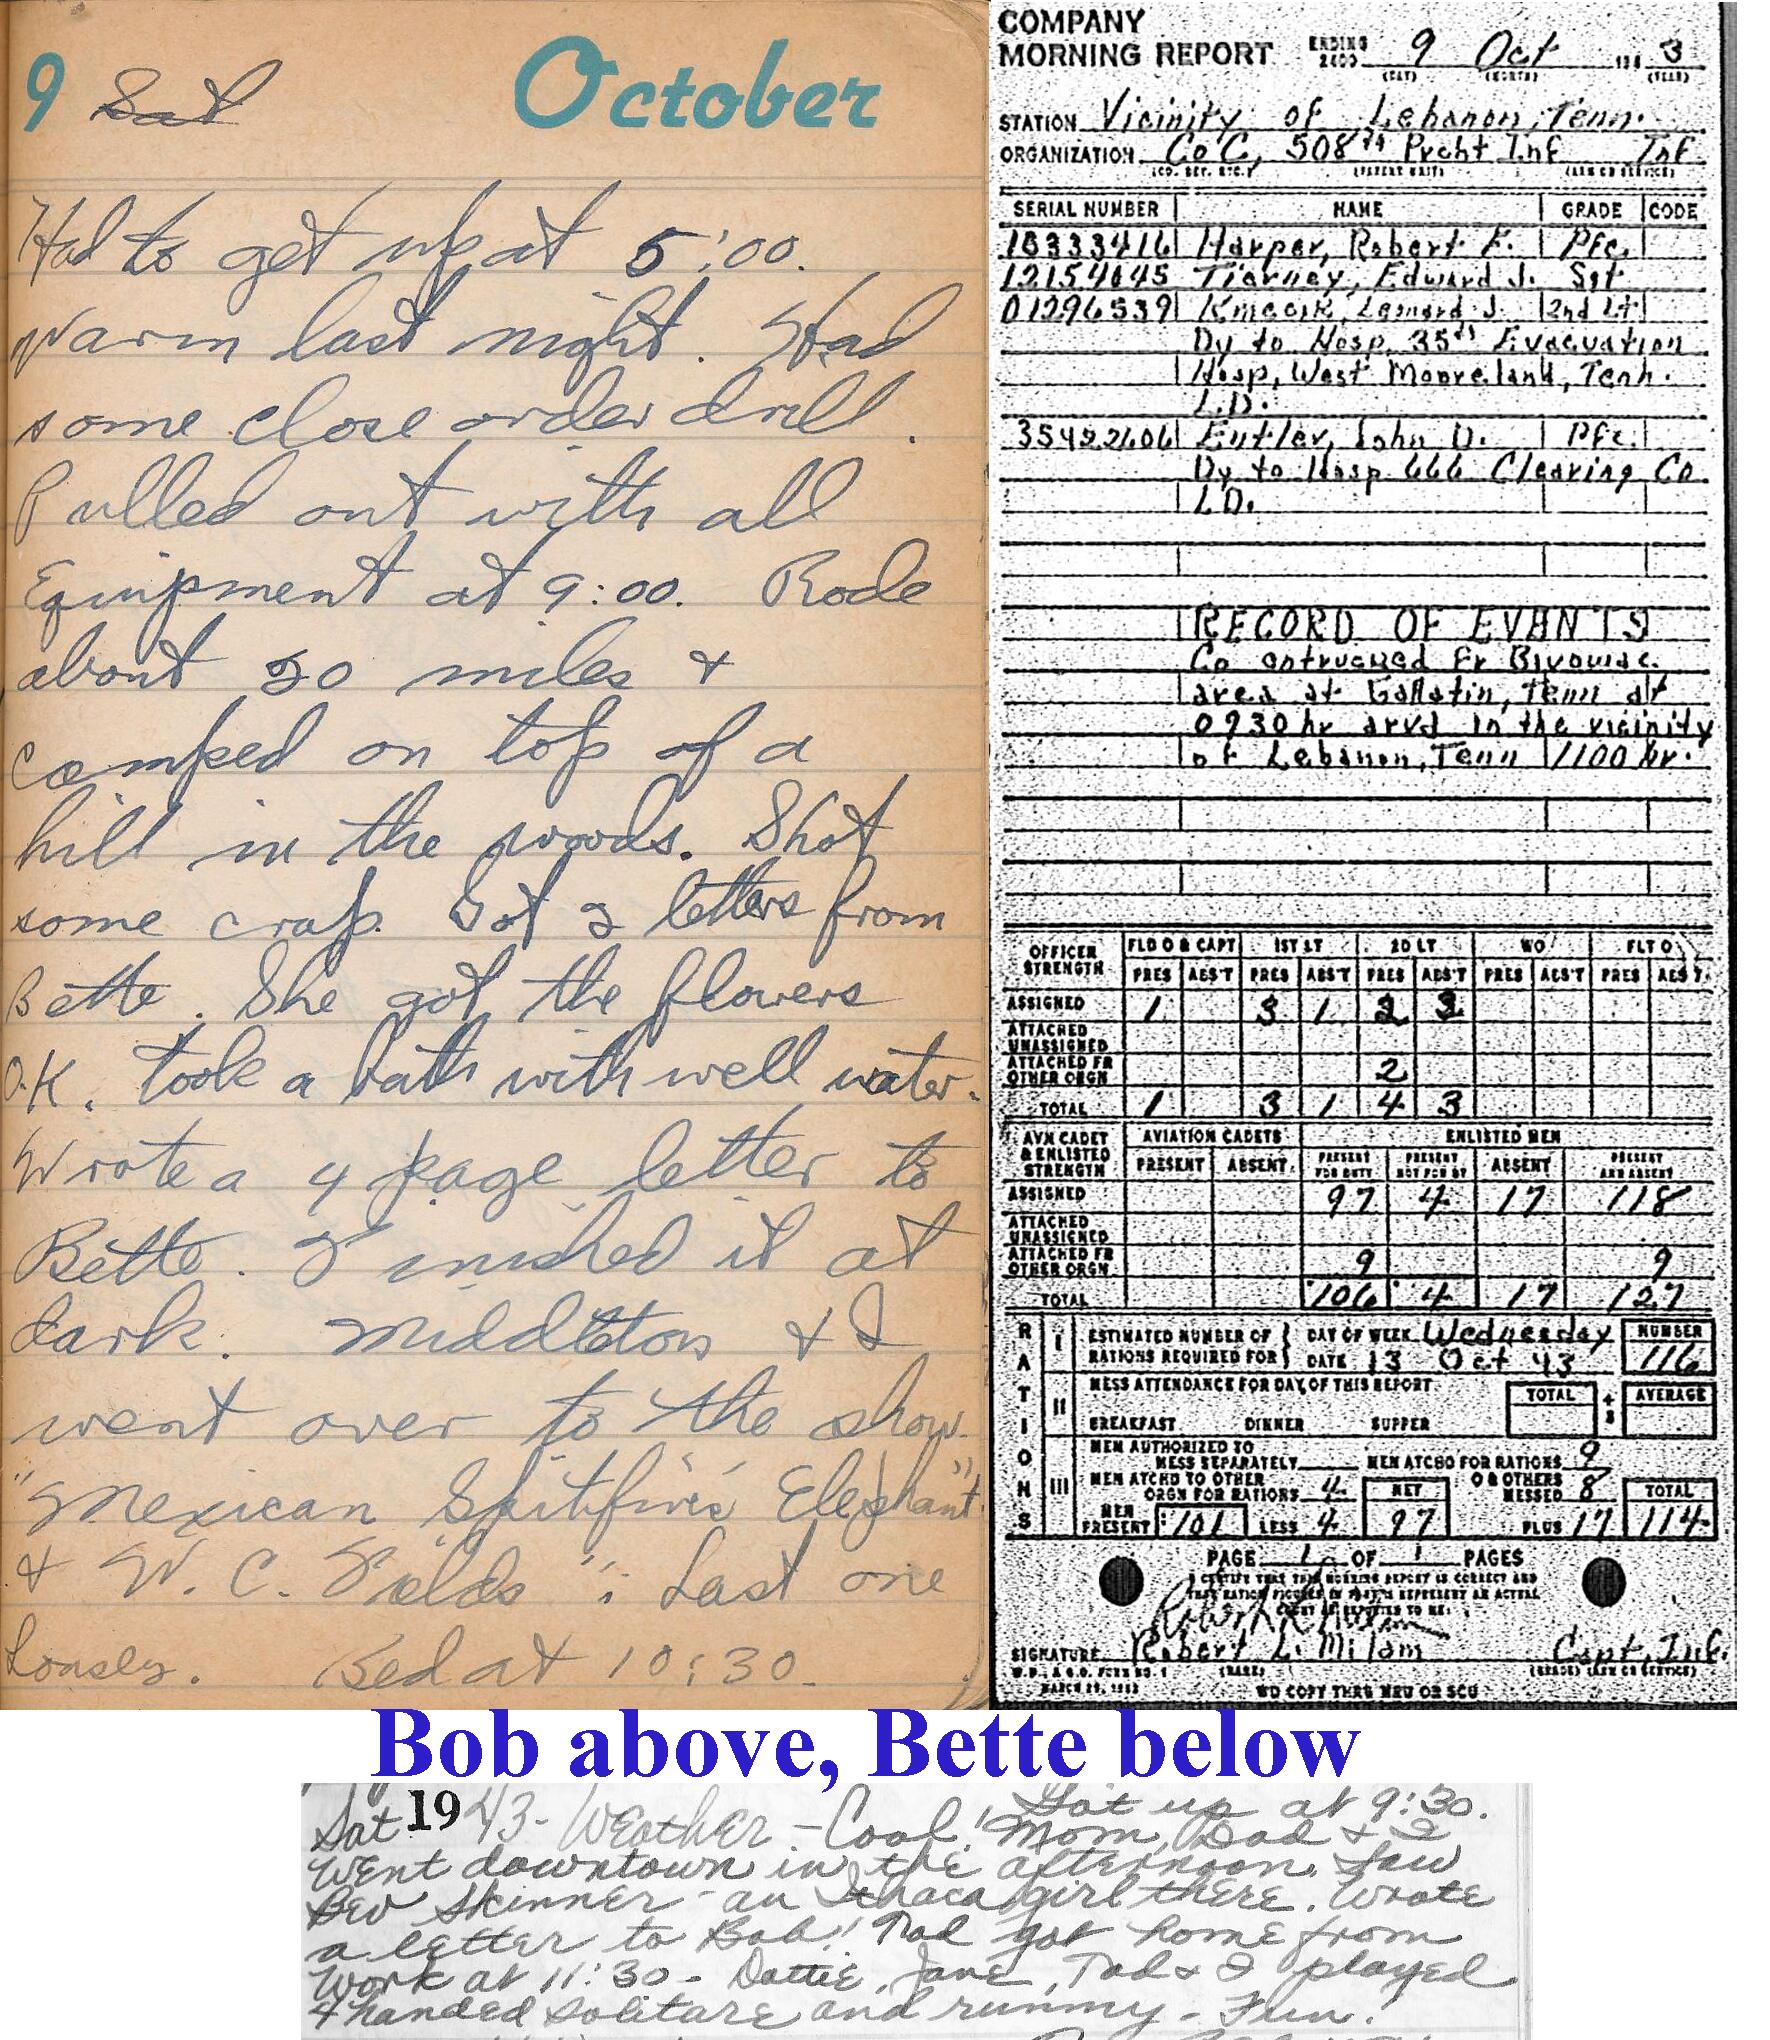 9 Sat October
Had to get up at 5:00.
Warm last night. Had
some close order drill.
Pulled out with all
Equipment at 9:00. Rode
about 30 miles &
camped on top of a
hill in the woods. Shot
some crap. Got 2 letters from
Bette. She got the flowers
O.K. took a bath with well water.
Wrote a 4 page letter to
Bette. Finished it at
dark. Middleton & I
went over to the show.
"Mexican Spitfire's Elephant"
& W. C. Fields". Last one
Lousey. Bed at 10:30.
COMPANY
MORNING REPORT ENDING 2400 9 Oct 194 3
(DAY) (MONTH) (YEAR)
STATION Vicinity of Lebanon, Tenn.
ORGANIZATION Co C, 508th Prcht Inf Inf
(CO. DET. ETC.) (PARENT UNIT) (ARM OR SERVICE)
SERIAL NUMBER NAME GRADE CODE
Harper, Robert F. Pfc.
Tierney, Edward J. Sgt
01296539 Leonard J. 2nd Lt
Dy to Hosp 35th Evacuation
Hosp, West Mooreland, Tenn.
L.D.
35422606 Entler, John D. Pfc.
Dy to Hosp 666 Clearing Co
LD.
RECORD OF EVENTS
Co entrucked Fr Bivouac
area at Gallatin, Tenn at
0930 hr arvd in the vicinity
of Lebanon, Tenn 1100 hr.
OFFICER STRENGTH FLD O & CAPT 1ST LT 2D LT WO FLT O
PRES ABS'T PRES ABS'T PRES ABS'T PRES ABS'T PRES ABS'T
ASSIGNED 1 3 1 2 3
ATTACHED UNASSIGNED
ATTACHED FR OTHER ORGN 2
TOTAL 1 3 1 4 3
AVN CADET & ENLISTED STRENGTH AVIATION CADETS ENLISTED MEN
PRESENT ABSENT PRESENT FOR DUTY PRESENT NOT FOR DY ABSENT PRESENT AND ABSENT
ASSIGNED 97 4 17 118
ATTACHED UNASSIGNED
ATTACHED FR OTHER ORGN 9 9
TOTAL 106 4 17 127
RATIONS
I ESTIMATED NUMBER OF RATIONS REQUIRED FOR DAY OF WEEK Wednesday NUMBER
DATE 13 Oct 43 116
II MESS ATTENDANCE FOR DAY OF THIS REPORT TOTAL ÷ 3 AVERAGE
BREAKFAST DINNER SUPPER
III MEN AUTHORIZED TO MESS SEPARATELY MEN ATCHD FOR RATIONS 9
MEN ATCHD TO OTHER ORGN FOR RATIONS 4 NET O & OTHERS MESSED 8 TOTAL
MEN PRESENT 101 LESS 4 97 PLUS 17 114
PAGE 1 OF 1 PAGES
I CERTIFY THAT THIS MORNING REPORT IS CORRECT AND
THAT RATION FIGURES IN PART III REPRESENT AN ACTUAL
COUNT AS REPORTED TO ME:
SIGNATURE Robert L. Milam Capt, Inf.
W.D., A.G.O. FORM NO. 1 (NAME) (GRADE) (ARM OR SERVICE)
MARCH WD COPY THRU MRU OR SCU
Bob above, Bette below
Sat 1943 - Weather - Cool! Got up at 9:30.
Mom, Dad & I
went downtown in the afternoon. Saw
Bev Skinner - an Ithaca girl there. Wrote
a letter to Bob! Tad got home from
work at 11:30 - Dottie, Jane, Tad & I played
4 handed solitare and rummy - Fun!